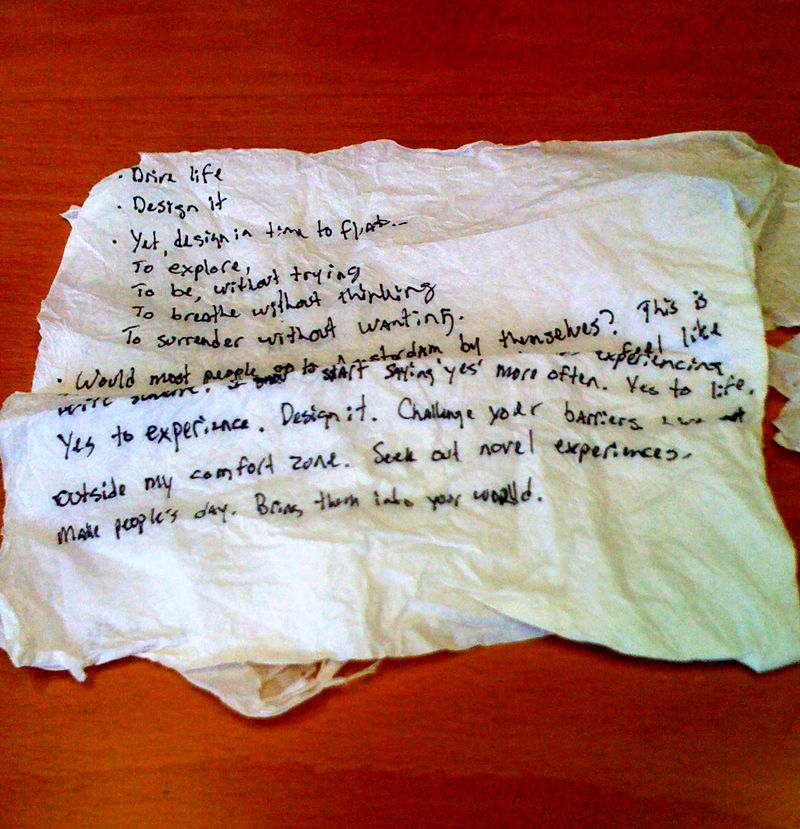 · Drive life
· Design it
· Yet, design in time to float...
To explore,
To be, without trying
To breathe without thinking
To surrender without wanting.
· Would most people go to Amsterdam by themselves? This is
start saying 'yes' more often. feel like experiencing
Yes to experience. Design it. Challenge your barriers Yes to life.
outside my comfort zone. Seek out novel experiences.
Make people's day. Bring them into your world.